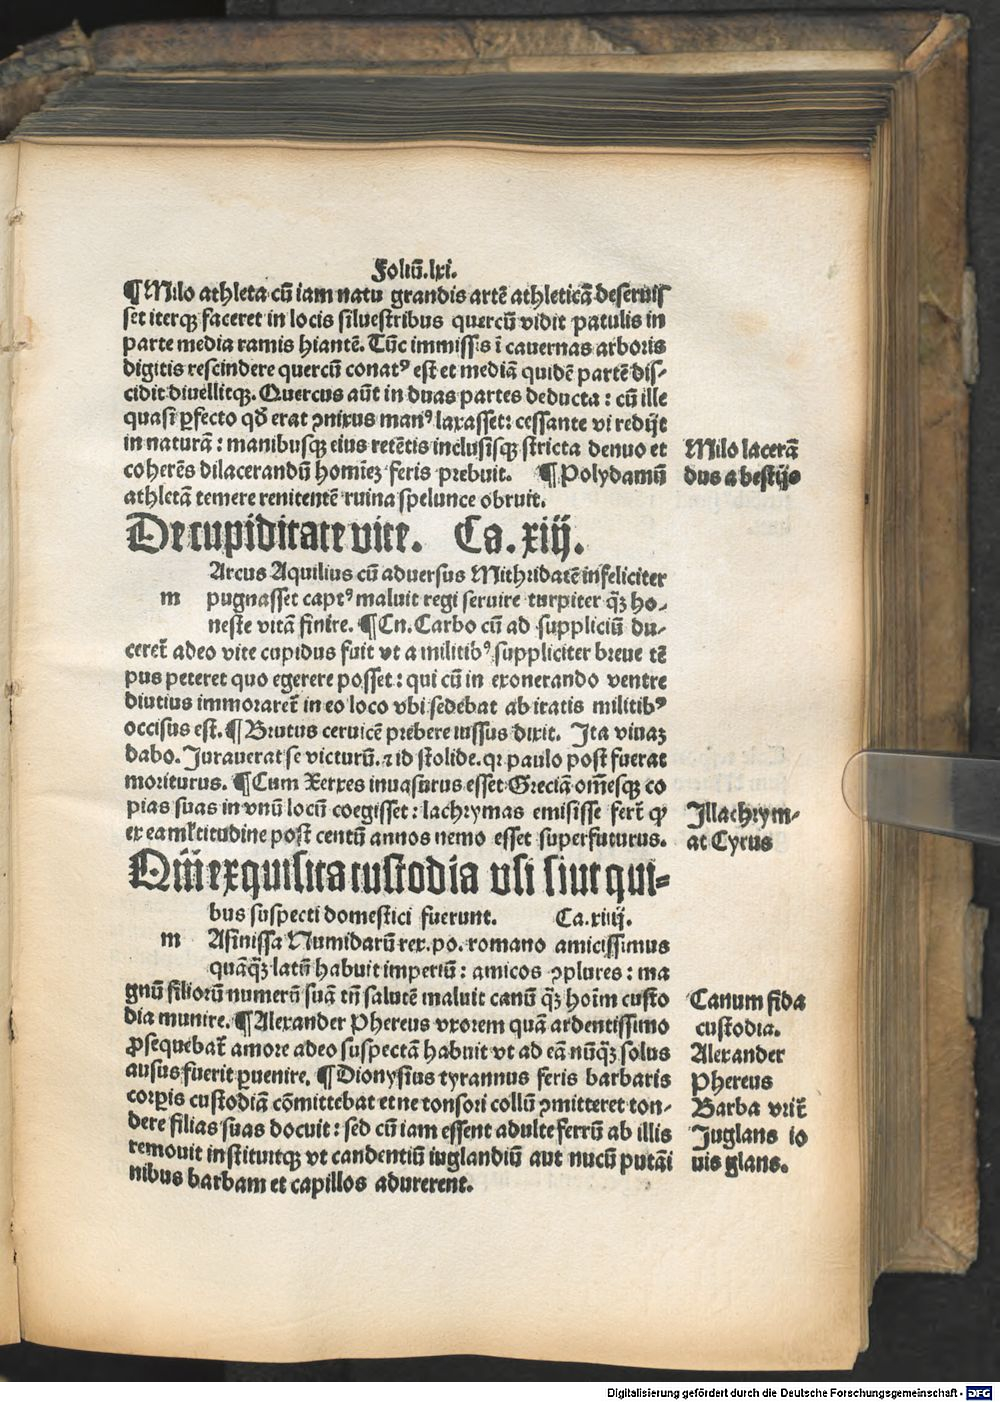 Foliū.lxi.
¶Milo athleta cū iam natu grandis artē athleticā deseruis
set iterqꝫ faceret in locis siluestribus quercū vidit patulis in
parte media ramis hiantē. Tūc immissis ī cauernas arboris
digitis rescindere quercū conatꝰ est et mediā quidē partē dis-
cidit diuellitqꝫ. Quercus aūt in duas partes deducta: cū ille
quasi ꝑfecto qđ erat ꝯnixus manꝰ laxasset: cessante vi redijt
in naturā: manibusqꝫ eius retētis inclusisqꝫ stricta denuo et
coherēs dilacerandū homiēꝫ feris prebuit. ¶Polydamū
athletā temere renitentē ruina spelunce obruit.
Milo lacerā
dus a bestijs
De cupiditate vite. Ca.xiij.
Arcus Aquilius cū aduersus Mithridatē infeliciter
m pugnasset captꝰ maluit regi seruire turpiter qꝫ̄ ho-
neste vitā finire. ¶Cn. Carbo cū ad suppliciū du-
ceret̄ adeo vite cupidus fuit vt a militibꝰ suppliciter breue tē
pus peteret quo egerere posset: qui cū in exonerando ventre
diutius immoraret̄ in eo loco vbi sedebat ab iratis militibꝰ
occisus est. ¶Brutus ceruicē prebere iussus dixit. Ita viuaꝫ
dabo. Iurauerat se victurū. ⁊ id stolide. qꝛ paulo post fuerat
moriturus. ¶Cum Xerxes inuasurus esset Greciā om̄esqꝫ co
pias suas in vnū locū coegisset: lachrymas emisisse fert̄ ꝙ
ex ea ml̄titudine post centū annos nemo esset superfuturus.
Illachrym-
at Cyrus
Qui exquisita custodia vsi sint qui-
bus suspecti domestici fuerunt. Ca.xiiij.
m Asinissa Numidarū rex. po. romano amicissimus
quāqꝫ̄ latū habuit imperiū: amicos ꝯplures: ma
gnū filiorū numerū suā tn̄ salutē maluit canū qꝫ̄ hoīm custo
dia munire. ¶Alexander Phereus vxorem quā ardentissimo
ꝓsequebat̄ amore adeo suspectā habuit vt ad eā nūqꝫ̄ solus
ausus fuerit ꝑuenire. ¶Dionysius tyrannus feris barbaris
corꝑis custodiā cōmittebat et ne tonsori collū ꝯmitteret ton-
dere filias suas docuit: sed cū iam essent adulte ferrū ab illis
remouit instituitqꝫ vt candentiū iuglandiū aut nucū putāi
nibus barbam et capillos adurerent.
Canum fida
custodia.
Alexander
Phereus
Barba vrit̄
Iuglans io
uis glans.
Digitalisierung gefördert durch die Deutsche Forschungsgemeinschaft - DFG